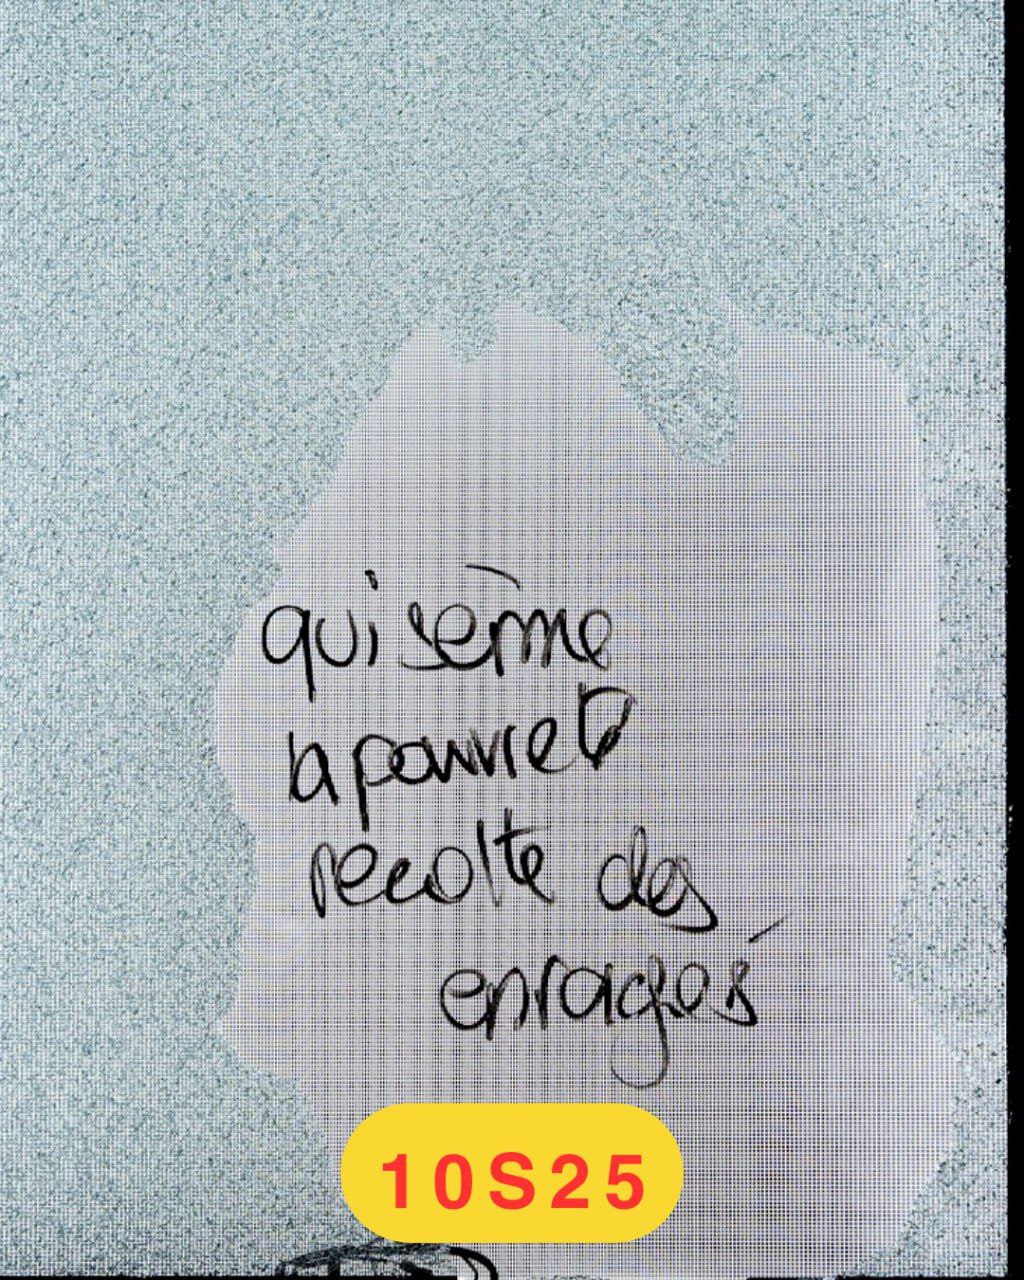 qui sème
la pauvreté
récolte des
enragés
10S25